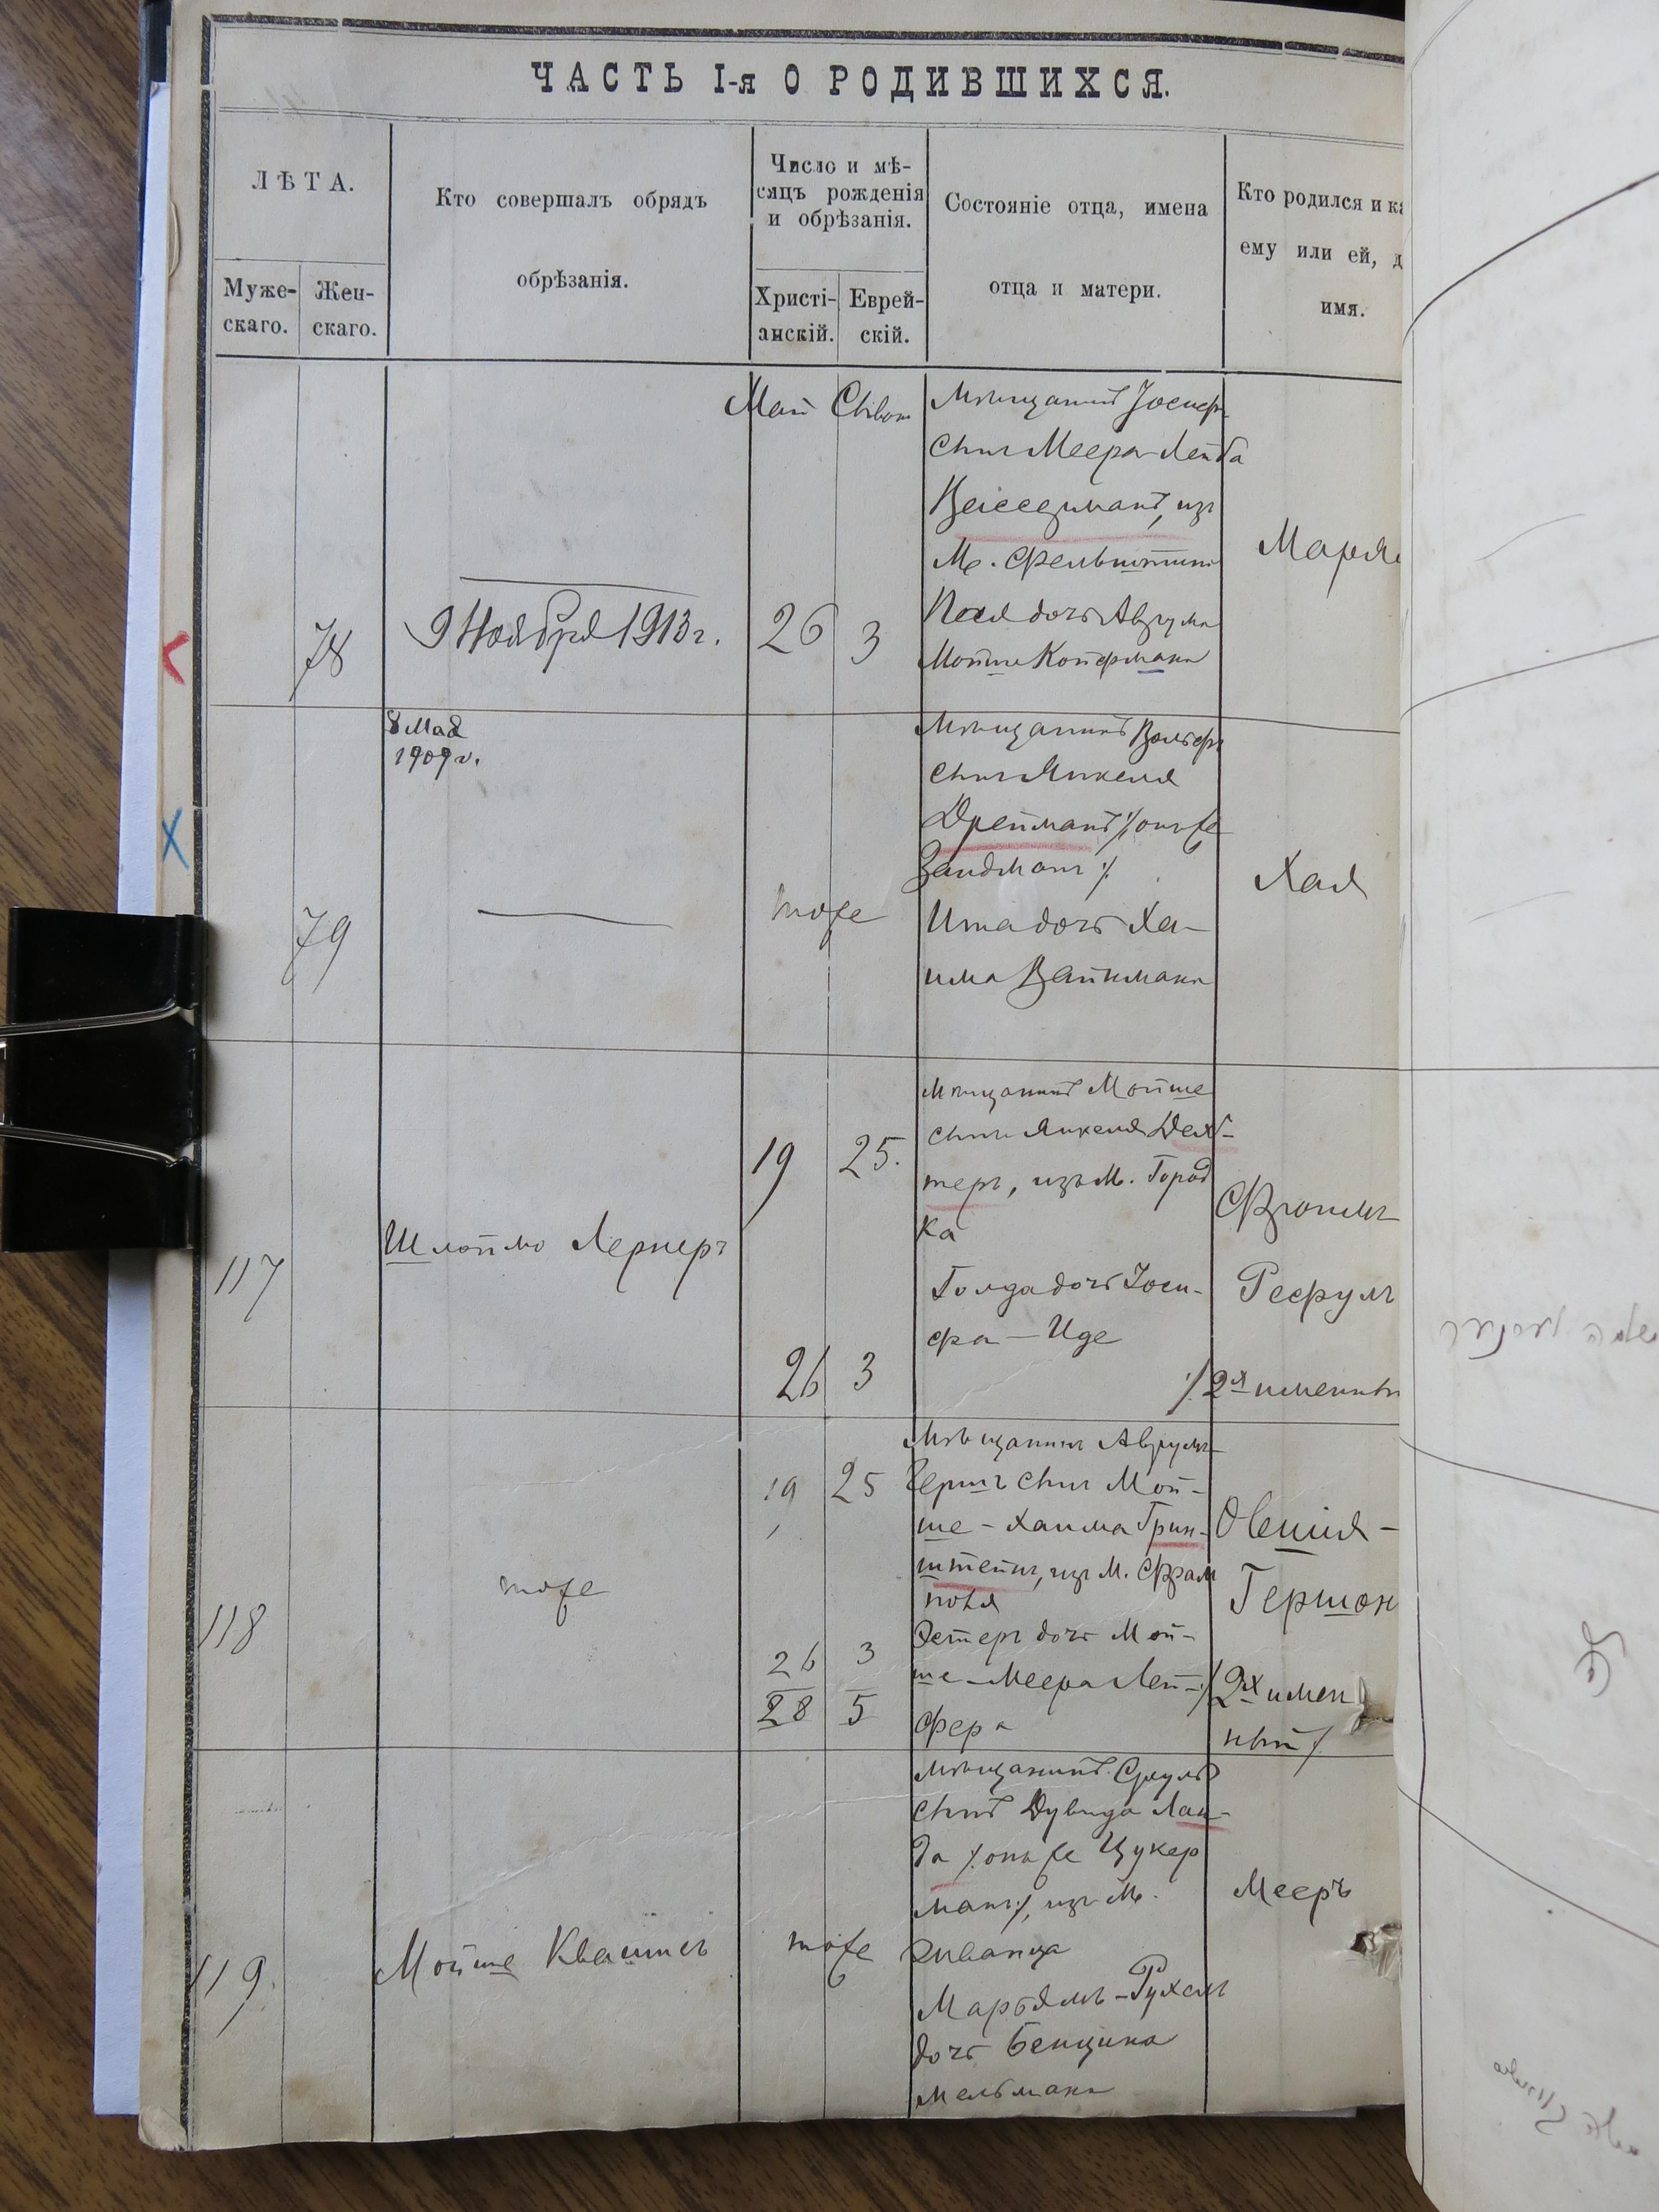 ЧАСТЬ I-я О РОДИВШИХСЯ.
ЛѢТА.
Муже-
скаго.
Жен-
скаго.
Кто совершалъ обрядъ
обрѣзанія.
Число и мѣ-
сяцъ рожденія
и обрѣзанія.
Христі-
анскій.
Еврей-
скій.
Состояніе отца, имена
отца и матери.
Кто родился и ка
ему или ей, д
имя.
78
9 Ноября 1913 г.
Май
26
Сивон
3
Мѣщанинъ Іосиф
сынъ Меера-Лейба
Вейссманъ, изъ
М. Фельштина
Песя дочь Аврума
Мойше Койфмана
79
8 Мая
1909 г.
тоже
Мѣщанинъ Вольфъ
сынъ Янкеля
Дрейманъ /: онъ же
Зайдманъ :/
Ита дочь Ха-
има Вайнмана
Хая
117
Шлоймо Лернеръ
19
25.
26
3
мѣщанинъ Мойше
сынъ Янкеля Дех-
теръ, изъ М. Город
ка
Голда дочь Іоси-
фа - Иде
Фроимъ
Рефулъ
/: 2хъ именны
118
тоже
19
25
26
3
28
5
Мѣщанинъ Аврумъ
Гершъ сынъ Мой-
ше - Хаима Грин-
штейнъ, изъ М. Фрам
поля
Эстеръ дочь Мой-
ше - Меера Лей-
фера
Овшія -
Гершон
/: 2хъ имен
ный /:
119.
Мойше Квашис
тоже
Мѣщанинъ Сруль
сынъ Дувида Лан-
да /: онъ же Цукер
манъ :/, изъ М.
Жванца
Марьямъ - Рухель
дочь Бенциона
Мельмана
Мееръ